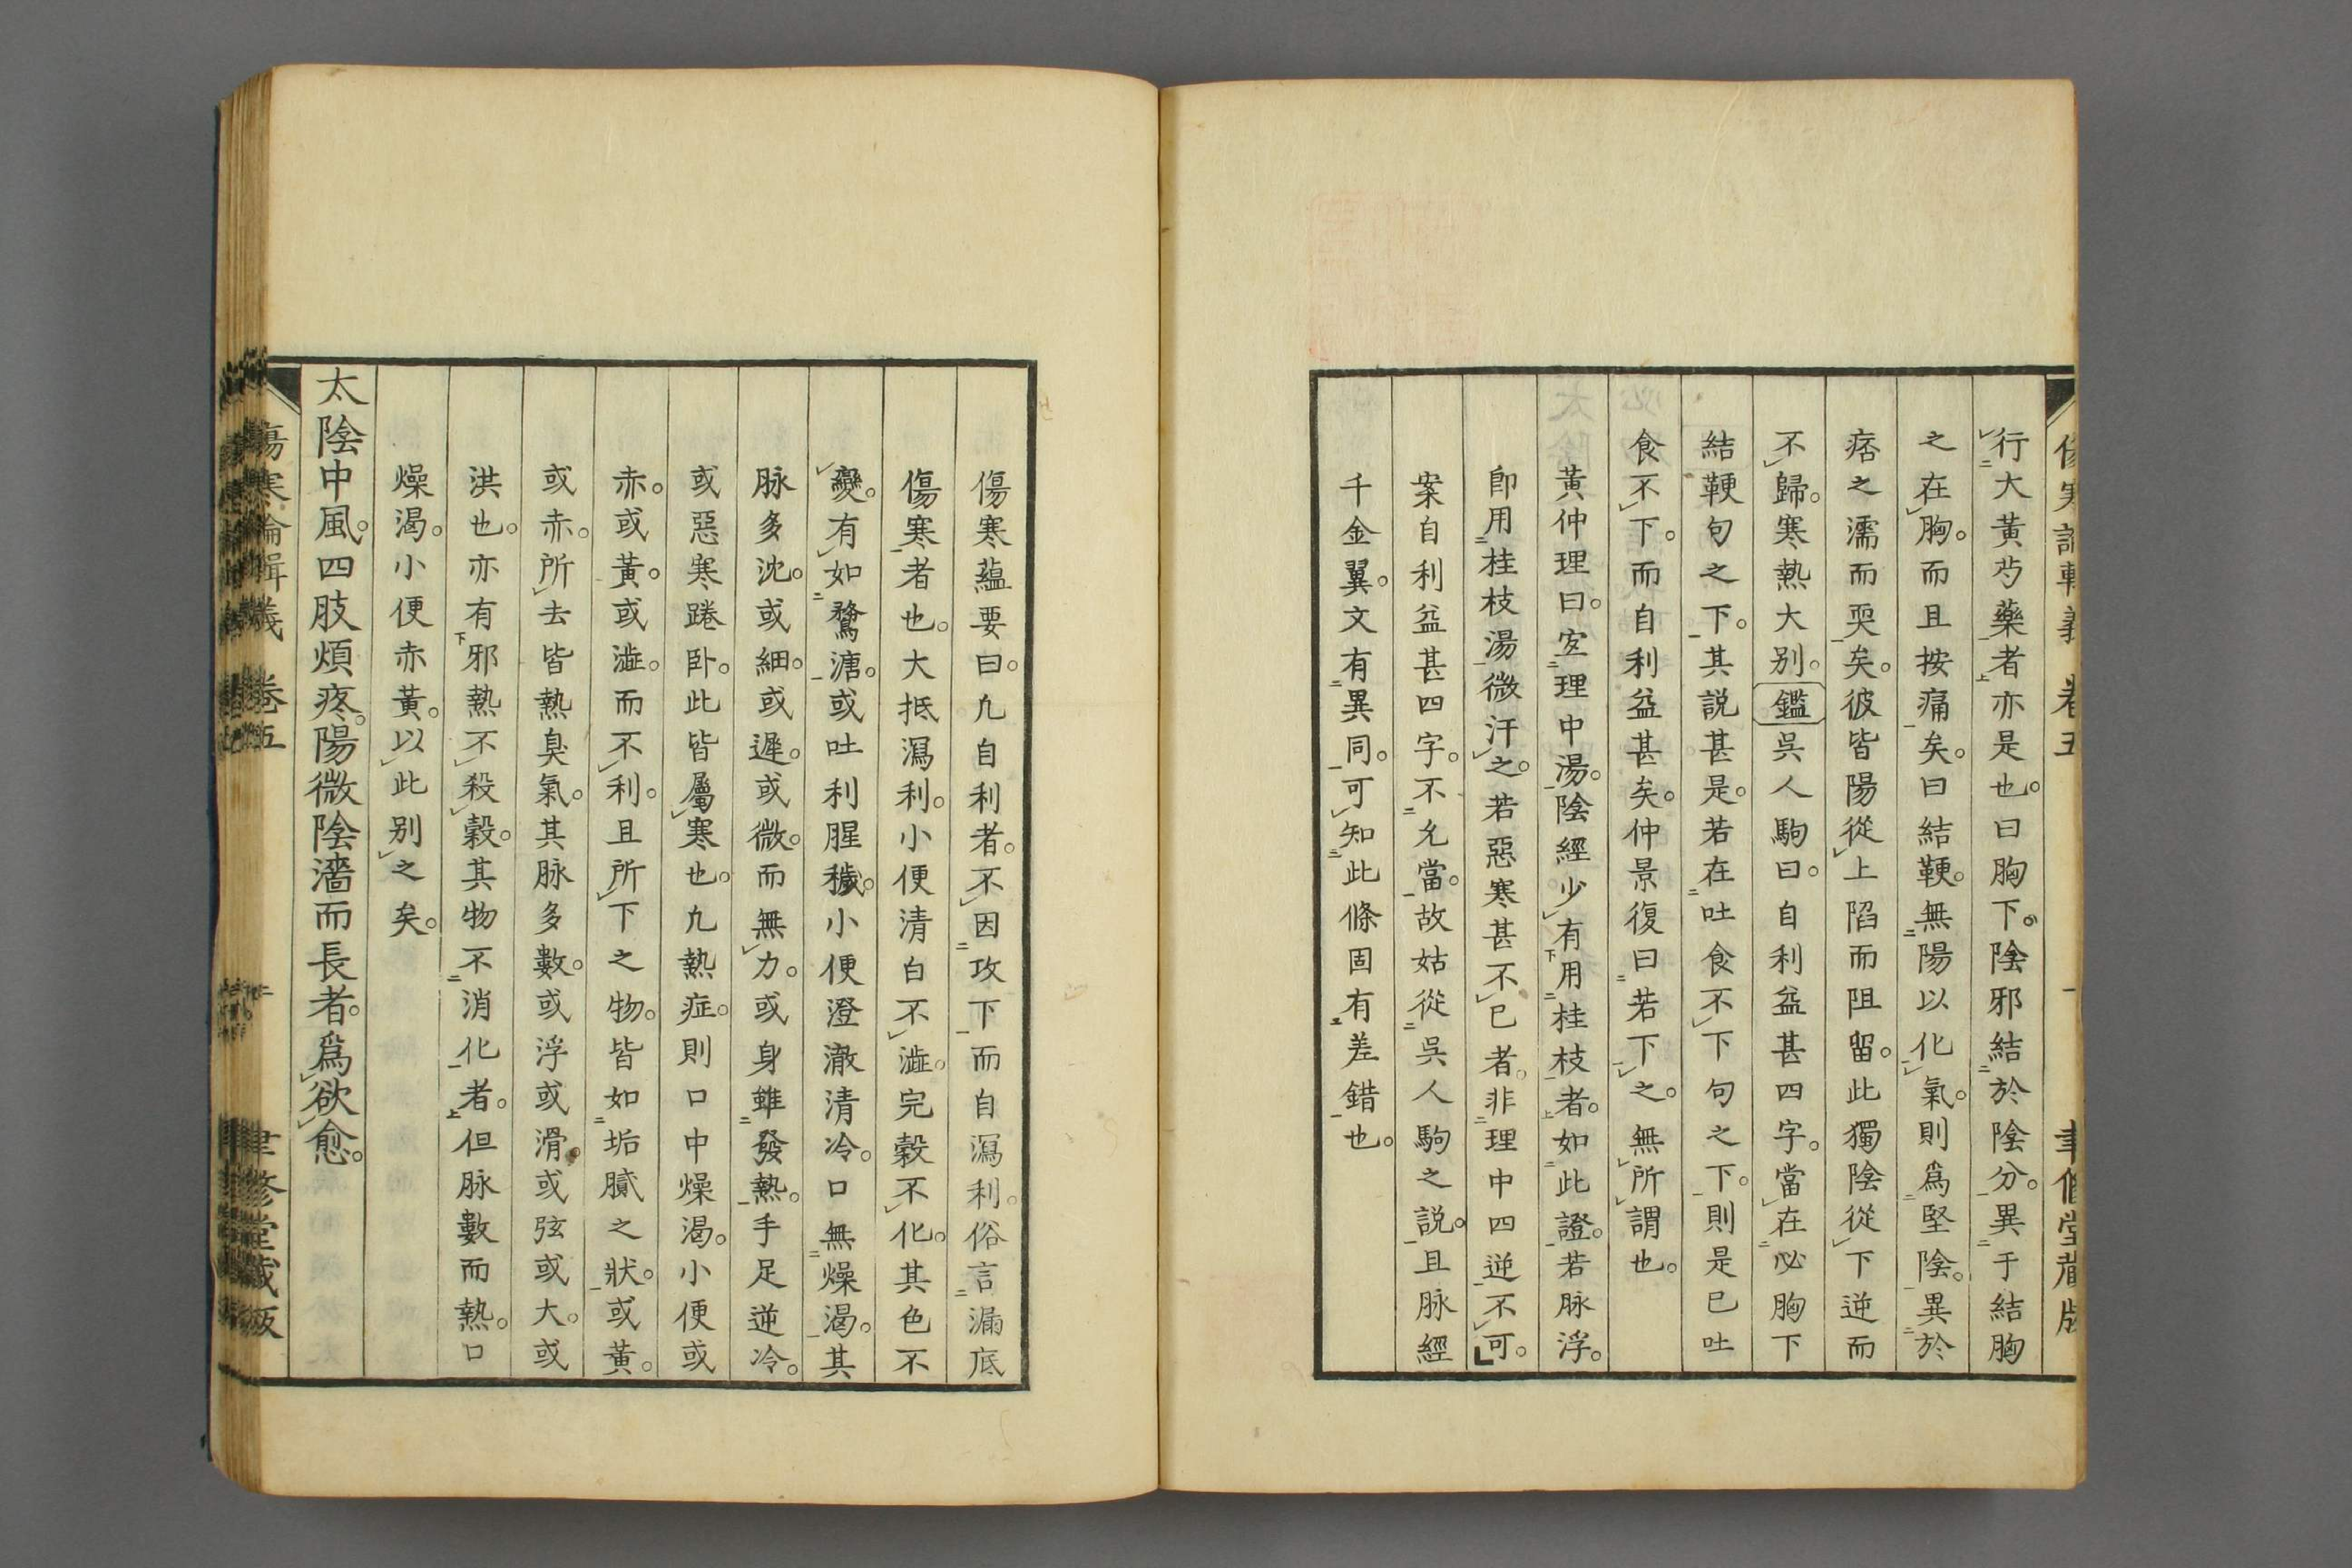 傷寒論輯義 卷五 一 聿修堂藏版
行大黃芍藥者亦是也。曰胸下。陰邪結於陰分。異于結胸
之在胸。而且按痛矣。曰結鞕。無陽以化氣。則爲堅陰。異於
痞之濡而耎矣。彼皆陽從上陷而阻留。此獨陰從下逆而
不歸。寒熱大別。鑑吳人駒曰。自利益甚四字。當在必胸下
結鞕句之下。其説甚是。若在吐食不下下句之下。則是已吐
食不下。而自利益甚矣。仲景復曰若下之。無所謂也。
黃仲理曰。宐理中湯。陰經少有用桂枝者。如此證。若脉浮。
卽用桂枝湯微汗之。若惡寒甚不已者。非理中四逆不可。
案自利益甚四字。不允當。故姑從吳人駒之説。且脉經
千金翼。文有異同。可知此條固有差錯也。
傷寒蘊要曰。凢自利者。不因攻下而自瀉利。俗言漏底
傷寒者也。大抵瀉利。小便清白不澁。完穀不化。其色不
變。有如鶩溏。或吐利腥穢。小便澄澈清冷。口無燥渴。其
脉多沈。或細。或遲。或微。而無力。或身雖發熱。手足逆冷。
或惡寒踡卧。此皆屬寒也。凢熱症。則口中燥渴。小便或
赤。或黃。或澁。而不利。且所下之物。皆如垢膩之狀。或黃。
或赤。所去皆熱臭氣。其脉多數。或浮或滑。或弦或大。或
洪也。亦有邪熱不殺穀。其物不消化者。但脉數而熱。口
燥渴。小便赤黃。以此别之矣。
太陰中風。四肢煩疼。陽微陰濇而長者。爲欲愈。
傷寒論輯義 卷五 二 聿修堂藏版